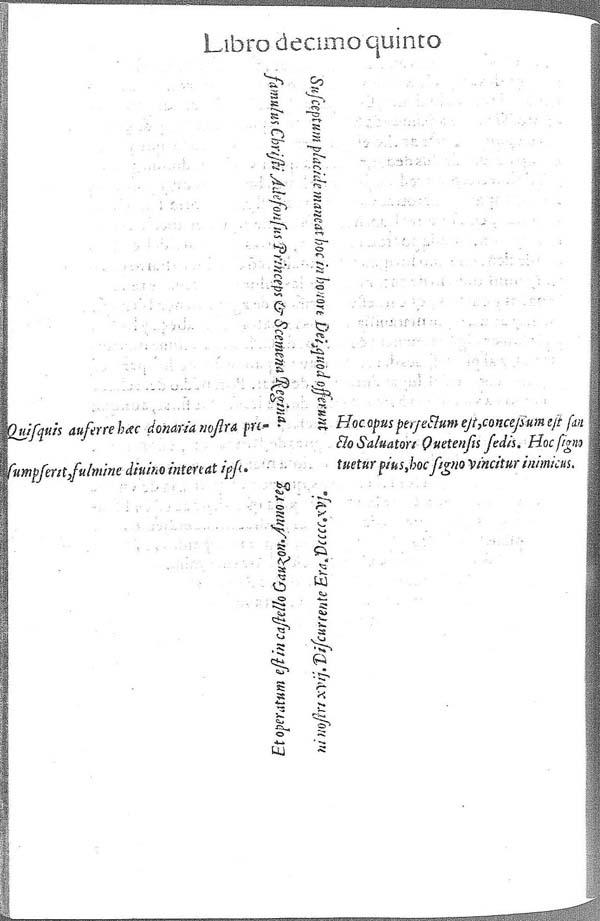 Libro decimo quinto
Suſceptum placide maneat hoc in honore Dei, quod offerunt
famulus Chriſti Adefonſus Princeps & Scemena Regina.
Quiſquis auferre hæc donaria noſtra pre-
ſumpſerit, fulmine diuino intereat ipſe.
Hoc opus perfectum eſt, conceſſum eſt ſan
cto Saluatori Ouetenſis ſedis. Hoc ſigno
tuetur pius, hoc ſigno vincitur inimicus.
Et operatum eſt in caſtello Gauzon. Anno reg
ni noſtri xvij. Diſcurrente Era. Dcccc.xvj.